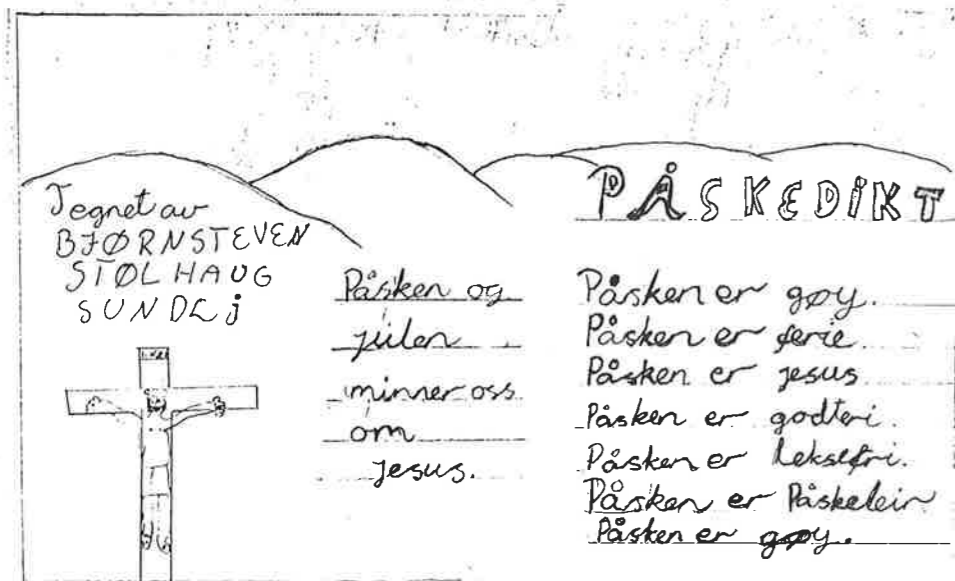 Tegnet av
BJØRNSTEVEN
STØLHAUG
Påsken og
julen
minner oss
om
jesus.
PÅSKEDIKT
Påsken er gøy.
Påsken er ferie.
Påsken er jesus
Påsken er godteri.
Påsken er leksefri.
Påsken er Påskeleir
Påsken er gøy.